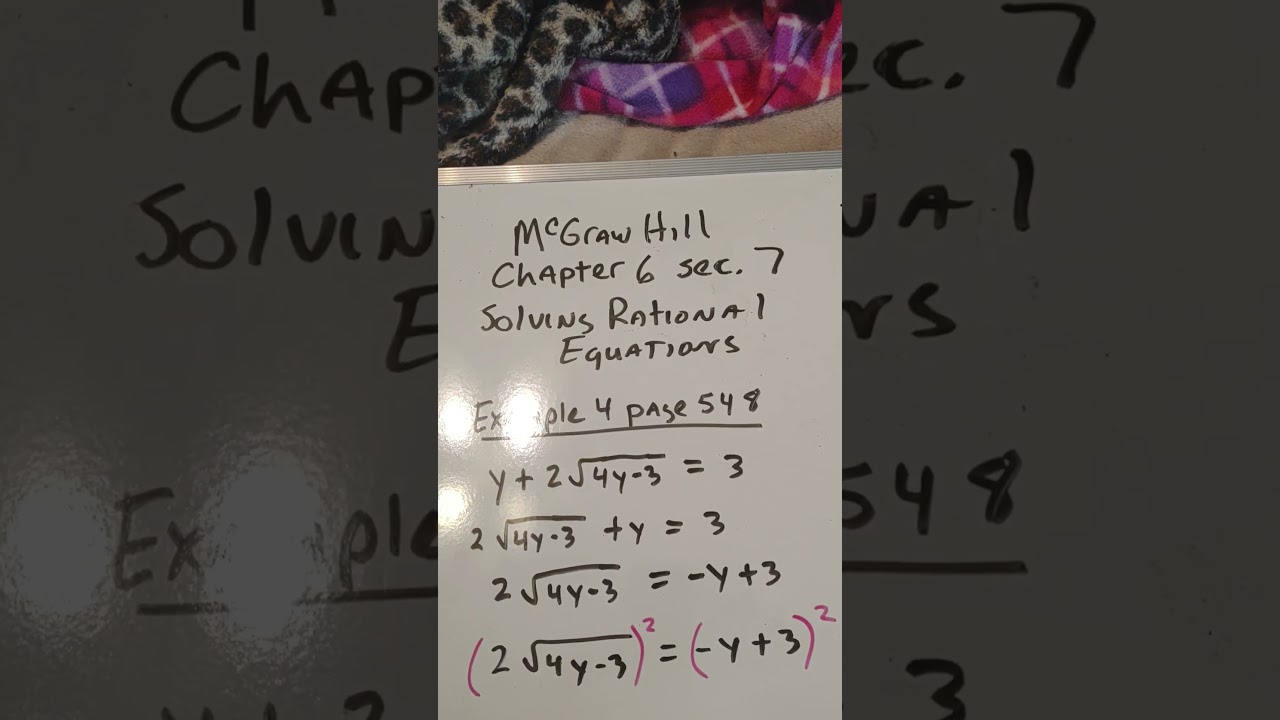 McGraw Hill
Chapter 6 sec. 7
Solving Rational
Equations
Example 4 page 548
y + 2√4y-3 = 3
2√4y-3 + y = 3
2√4y-3 = -y+3
(2√4y-3)² = (-y+3)²